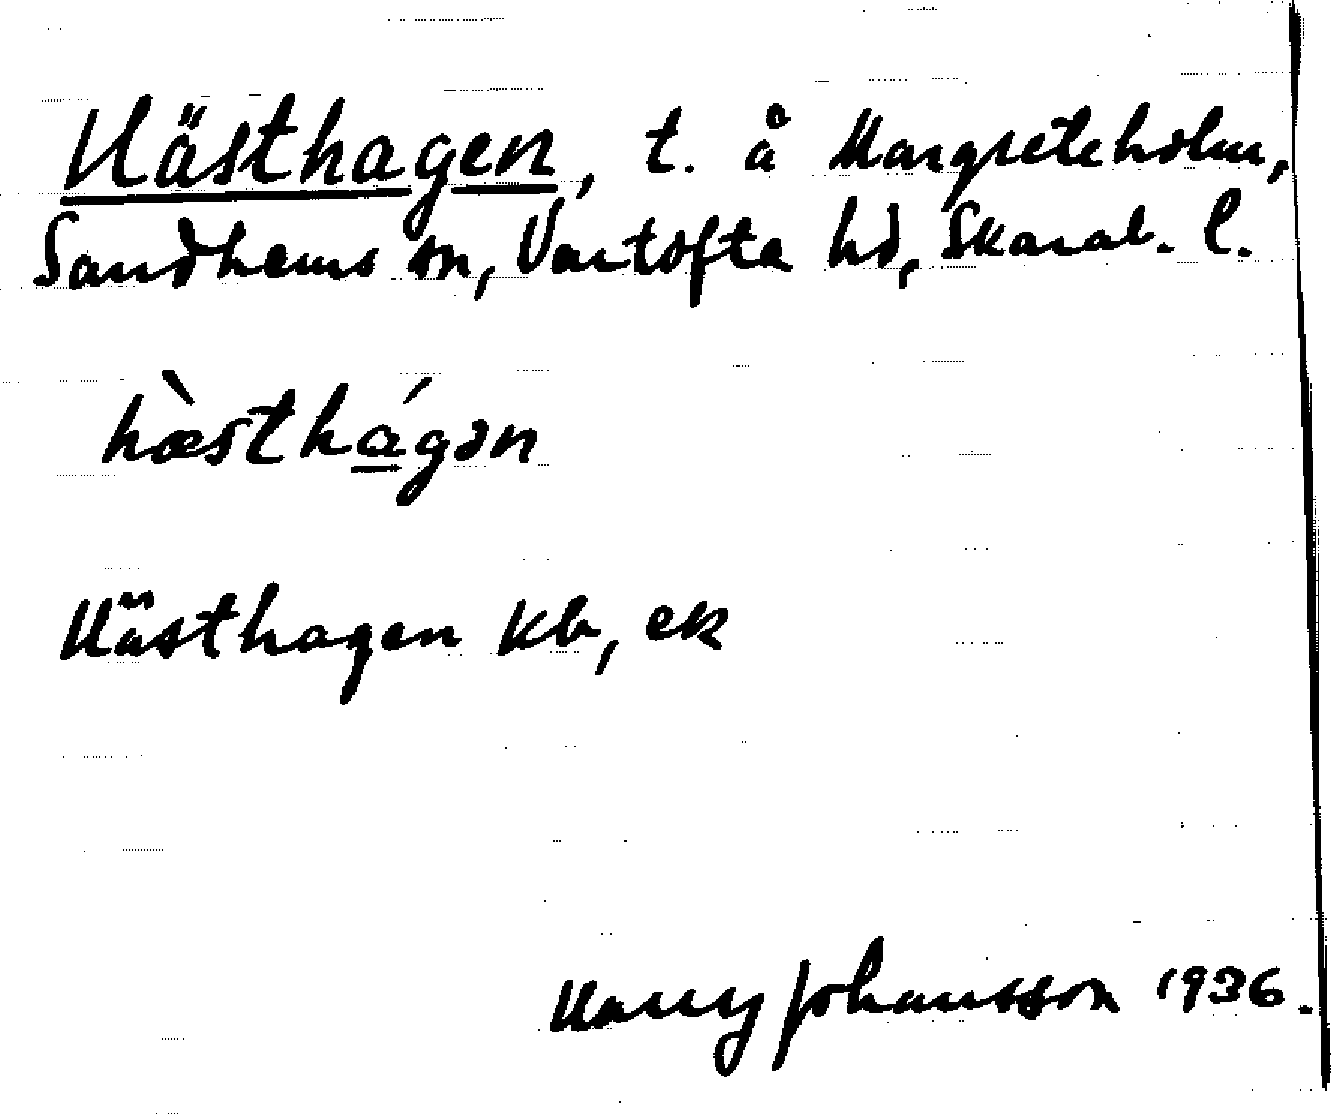 Hästhagen, t. å Margreteholm,
Sandhems sn, Vartofta hd, Skarab. l.
hæ̀sthágən
Hästhagen kb, ek
Harry Johansson 1936.